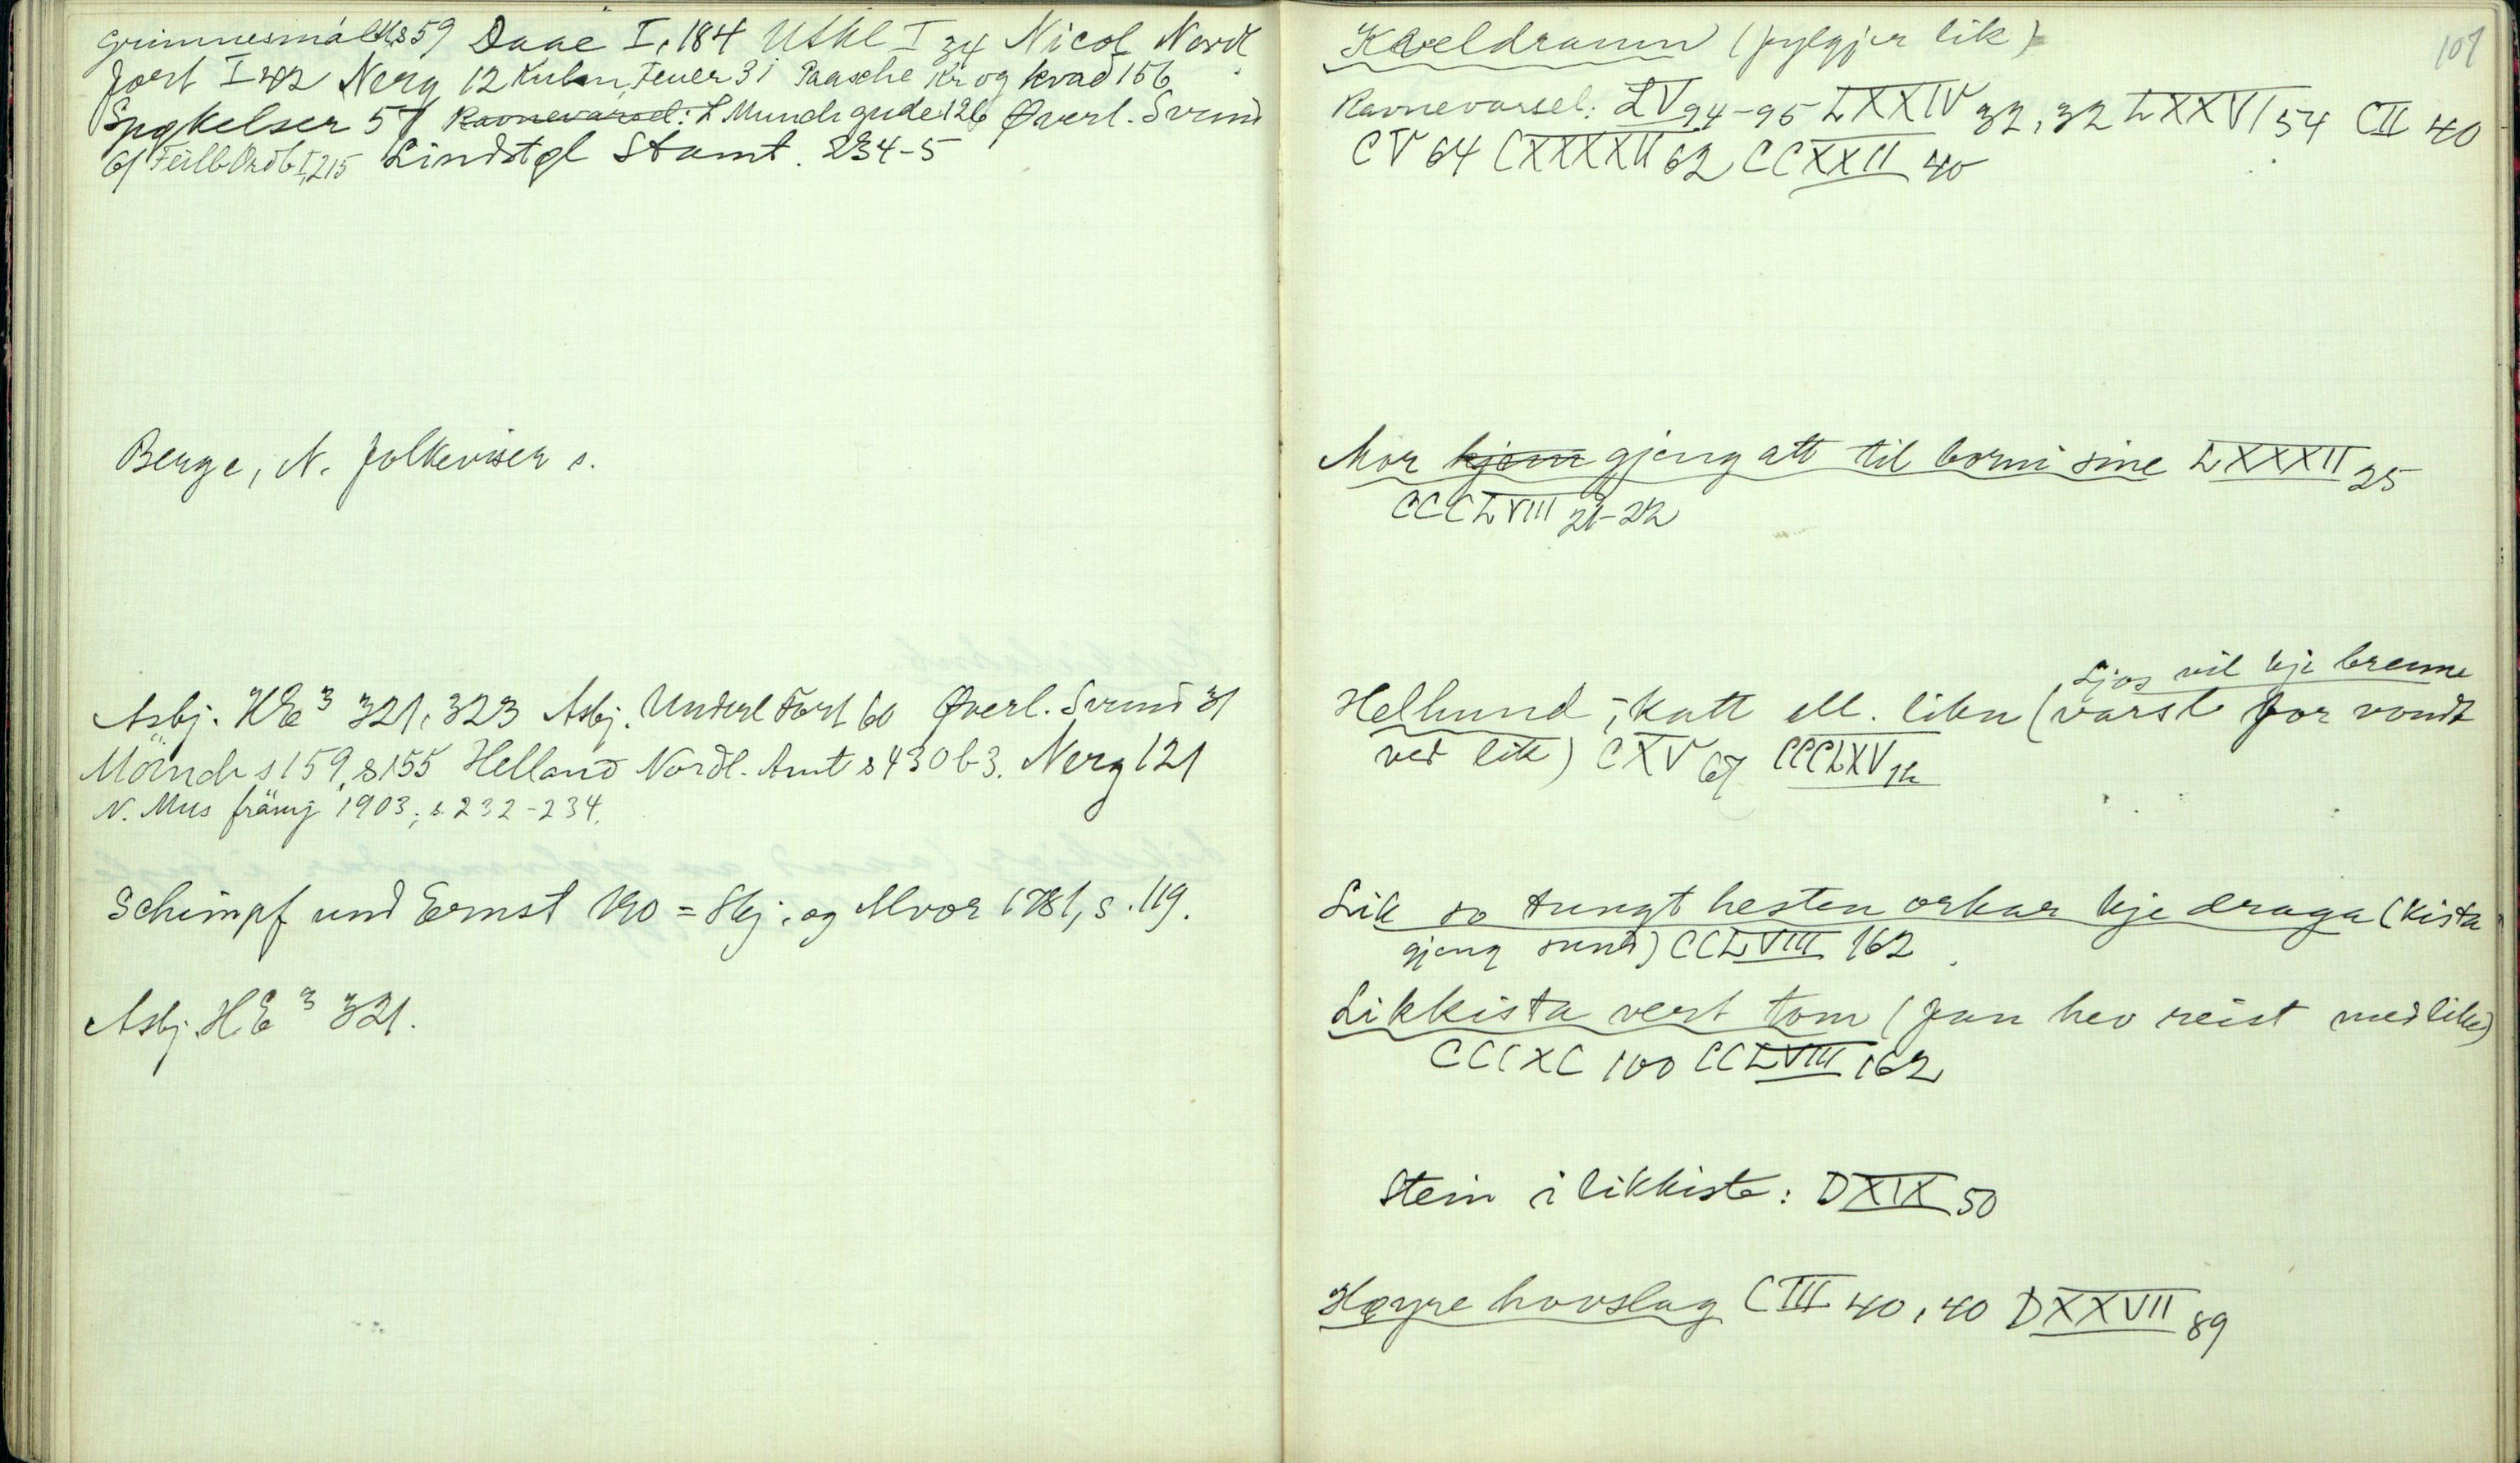 Grimnesmål s 59 Daae I, 184 Utkl I 34 Nicol Nordl.
fort I 42 Nerg 12 Kuhn, Feuer 31 Paasche Kr og kvad 156
Spøkelser 57 Ravnevarsel: Munch gudel 26 Øverl. Svund
61 Feilb Ordb I, 215 Lindstøl Stamt. 234-5
Berge, N. folkeviser s.
Asbj. HE 3 321, 323 Asbj. Underl Fort 60 Øverl. Svund 31
s 159, s 155 Helland Nordl. Amt s 430 b 3. Nerg 121
N. Mus 1903, s. 232-234.
Schimpf und Ernst 190 = Skj. og Alvor 1781, s. 119.
Asbj. HE 3 321.
107
Kveldramn (fylgjer lik)
Ravnevarsel: LV 94-95 LXXIV 32, 32 LXXVI 54 CII 40
CV 64 CXXXXII 62 CCXXII 40
Mor kjem gjeng att til borni sine LXXXII 25
CCCLVIII 21-22
Ljos vil kje brenne
Helhund, katt ell. likn (varsl for vondt
ved lik) CXV 67 CCCLXV 12
Lik so tungt hesten orkar kje draga (kista
gjeng sund) CCLVIII 162
Likkista vert tom (fan hev reist med like)
CCCXC 100 CCLVIII 162
Stein i likkiste: DXIX 50
Høyre hovslag CIII 40, 40 DXXVII 89